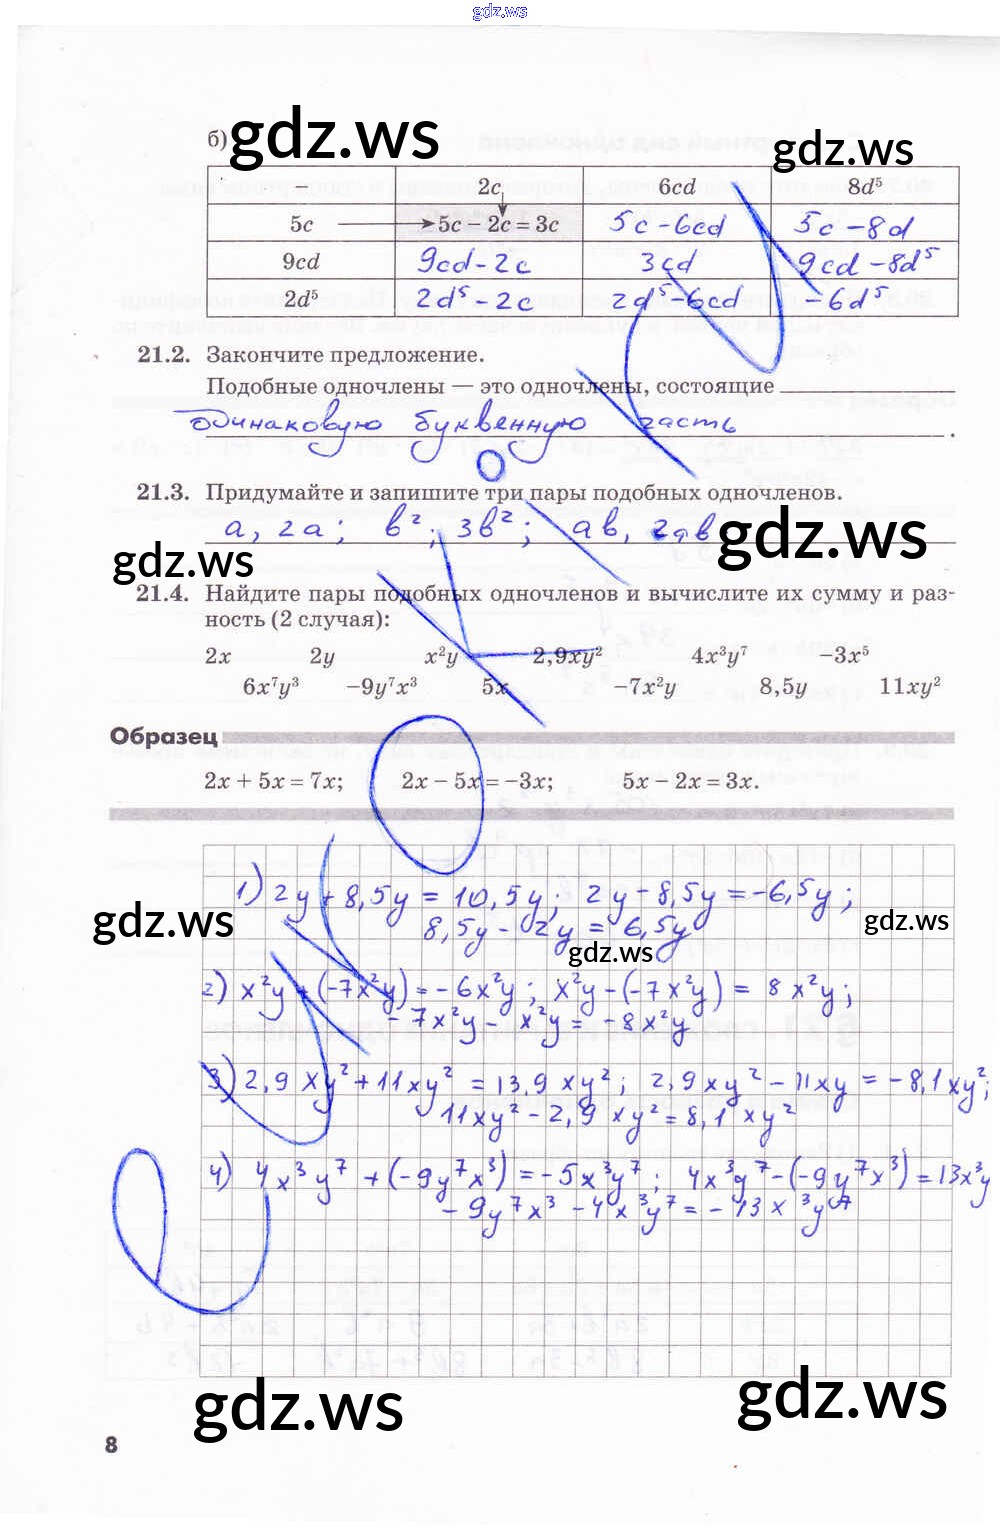 gdz.ws
б)
gdz.ws gdz.ws
– 2c 6cd 8d⁵
5c 5c – 2c = 3c 5c – 6cd 5c – 8d
9cd 9cd – 2c 3cd 9cd – 8d⁵
2d⁵ 2d⁵ – 2c 2d⁵ – 6cd – 6d⁵
21.2. Закончите предложение.
Подобные одночлены — это одночлены, состоящие
одинаковую буквенную часть .
21.3. Придумайте и запишите три пары подобных одночленов.
a, 2a; b²; 3b²; ab, 2ab
gdz.ws gdz.ws
21.4. Найдите пары подобных одночленов и вычислите их сумму и раз-
ность (2 случая):
2x 2y x²y 2,9xy² 4x³y⁷ –3x⁵
6x⁷y³ –9y⁷x³ 5x –7x²y 8,5y 11xy²
Образец
2x + 5x = 7x; 2x – 5x = –3x; 5x – 2x = 3x.
1) 2y + 8,5y = 10,5y; 2y – 8,5y = –6,5y;
8,5y – 2y = 6,5y
gdz.ws gdz.ws gdz.ws
2) x²y + (–7x²y) = –6x²y; x²y – (–7x²y) = 8x²y;
–7x²y – x²y = –8x²y
3) 2,9xy² + 11xy² = 13,9xy²; 2,9xy² – 11xy = –8,1xy²;
11xy² – 2,9xy² = 8,1xy²
4) 4x³y⁷ + (–9y⁷x³) = –5x³y⁷; 4x³y⁷ – (–9y⁷x³) = 13x³y
–9y⁷x³ – 4x³y⁷ = –13x³y⁷
gdz.ws gdz.ws
8